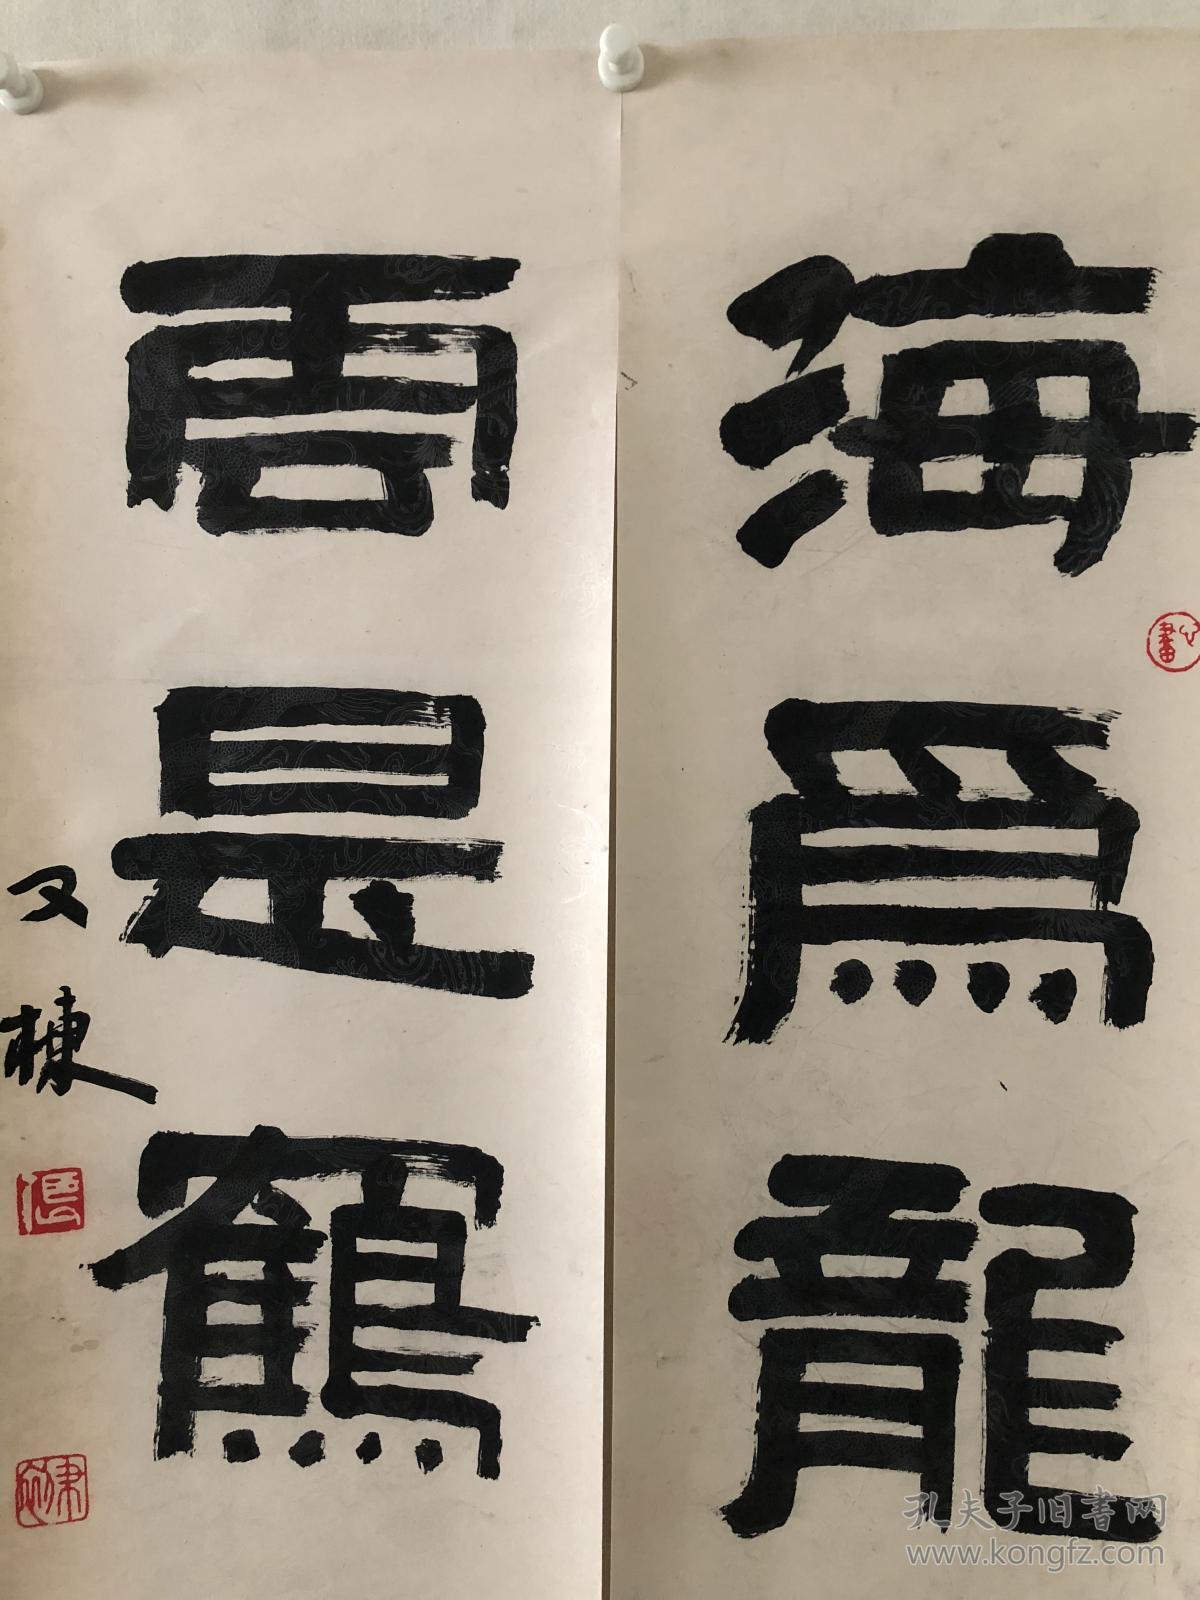 海為龍
心畫
雲是鶴
又棟
孔夫子旧書网
www.kongfz.com